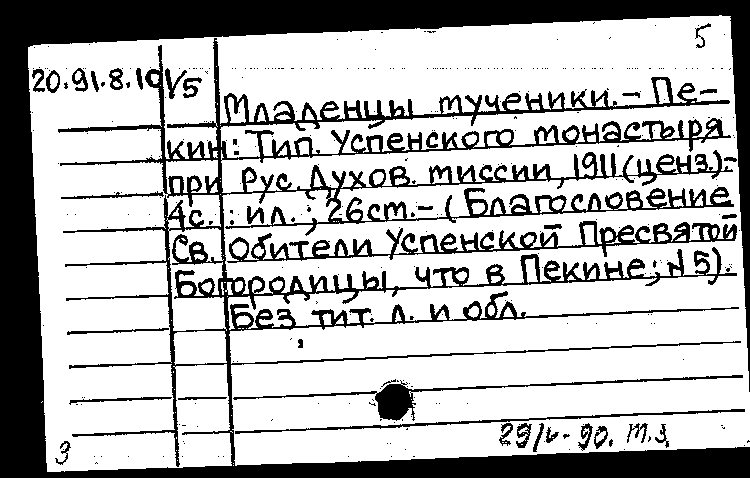 5
20.91.8.10/5
Младенцы мученики. – Пе-
кин: Тип. Успенского монастыря
при Рус. Духов. миссии, 1911 (ценз.).-
4с. : ил. ; 26см. – (Благословение
Св. Обители Успенской Пресвятой
Богородицы, что в Пекине; N 5).
Без тит. л. и обл.
29/V-90. т.з.
3